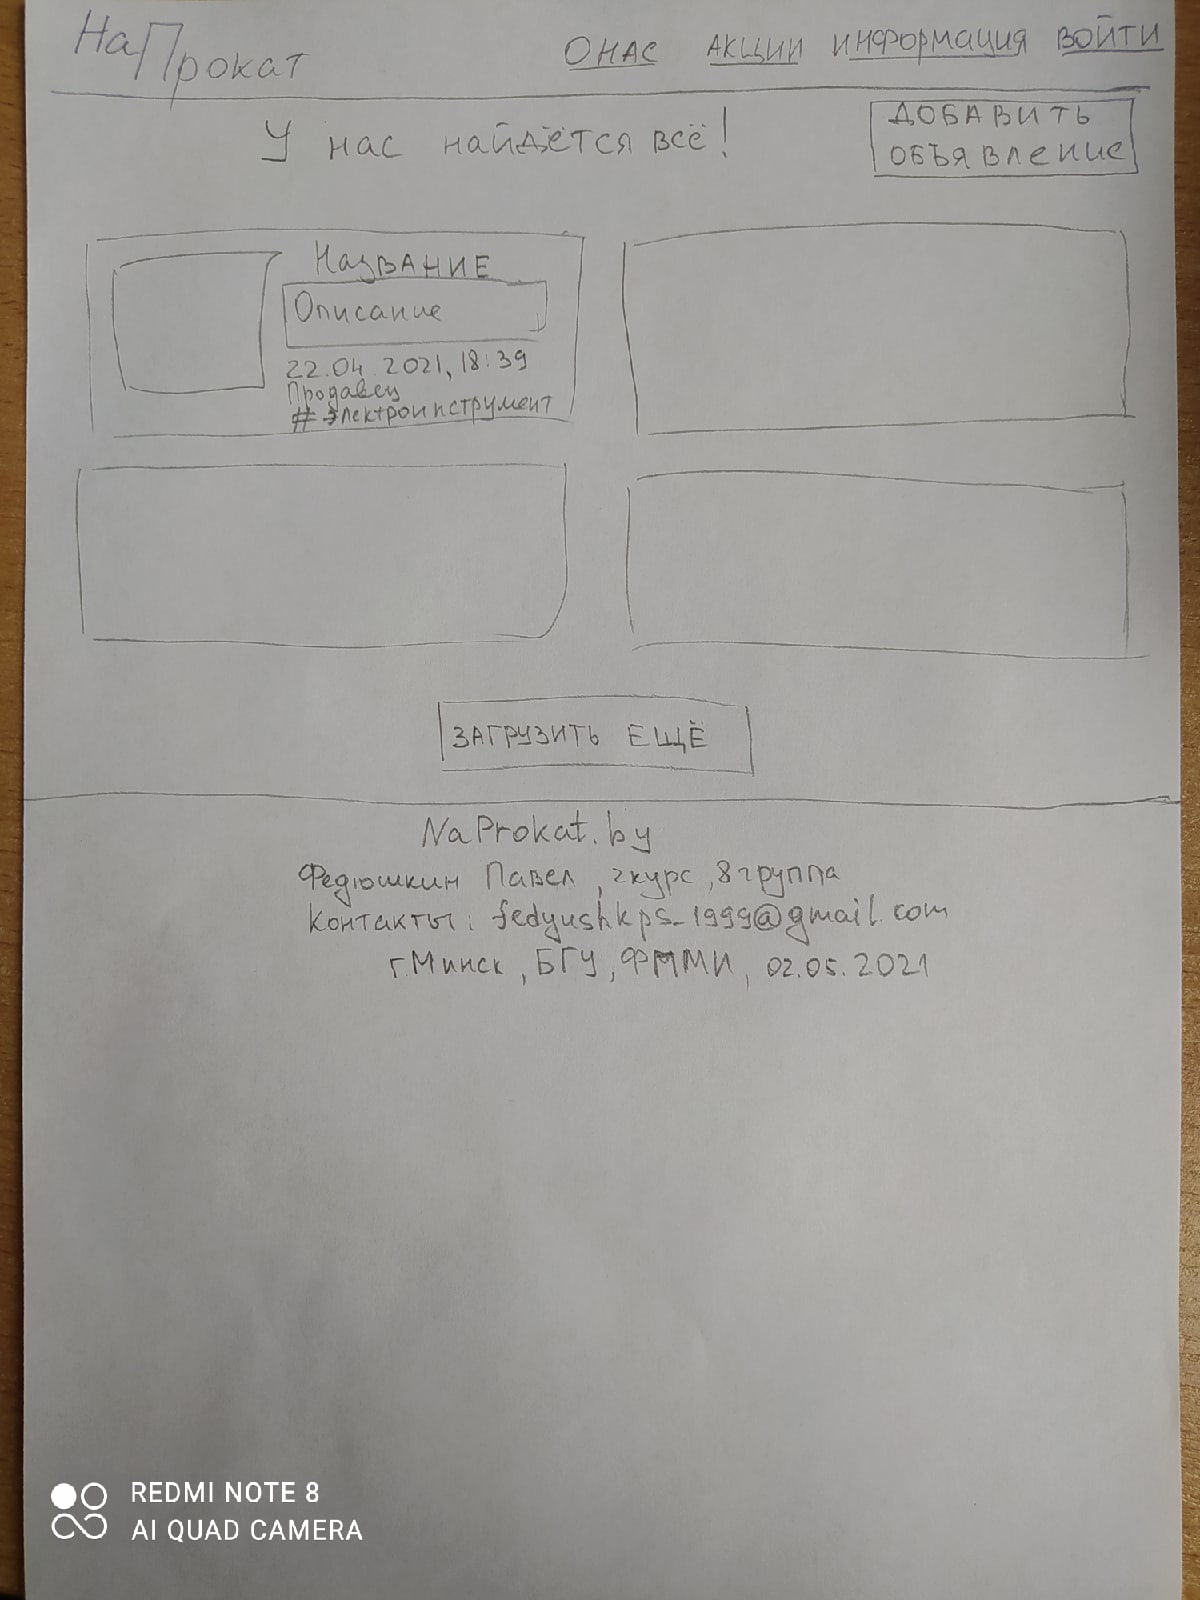 НаПрокат
О НАС АКЦИИ ИНФОРМАЦИЯ ВОЙТИ
У нас найдётся всё!
ДОБАВИТЬ
ОБЪЯВЛЕНИЕ
НАЗВАНИЕ
Описание
22.04.2021, 18:39
Продавец
#электроинструмент
ЗАГРУЗИТЬ ЕЩЁ
NaProkat.by
Федюшкин Павел, 2 курс, 8 группа
Контакты: fedyushkps_1999@gmail.com
г.Минск, БГУ, ФПМИ, 02.05.2021
REDMI NOTE 8
AI QUAD CAMERA